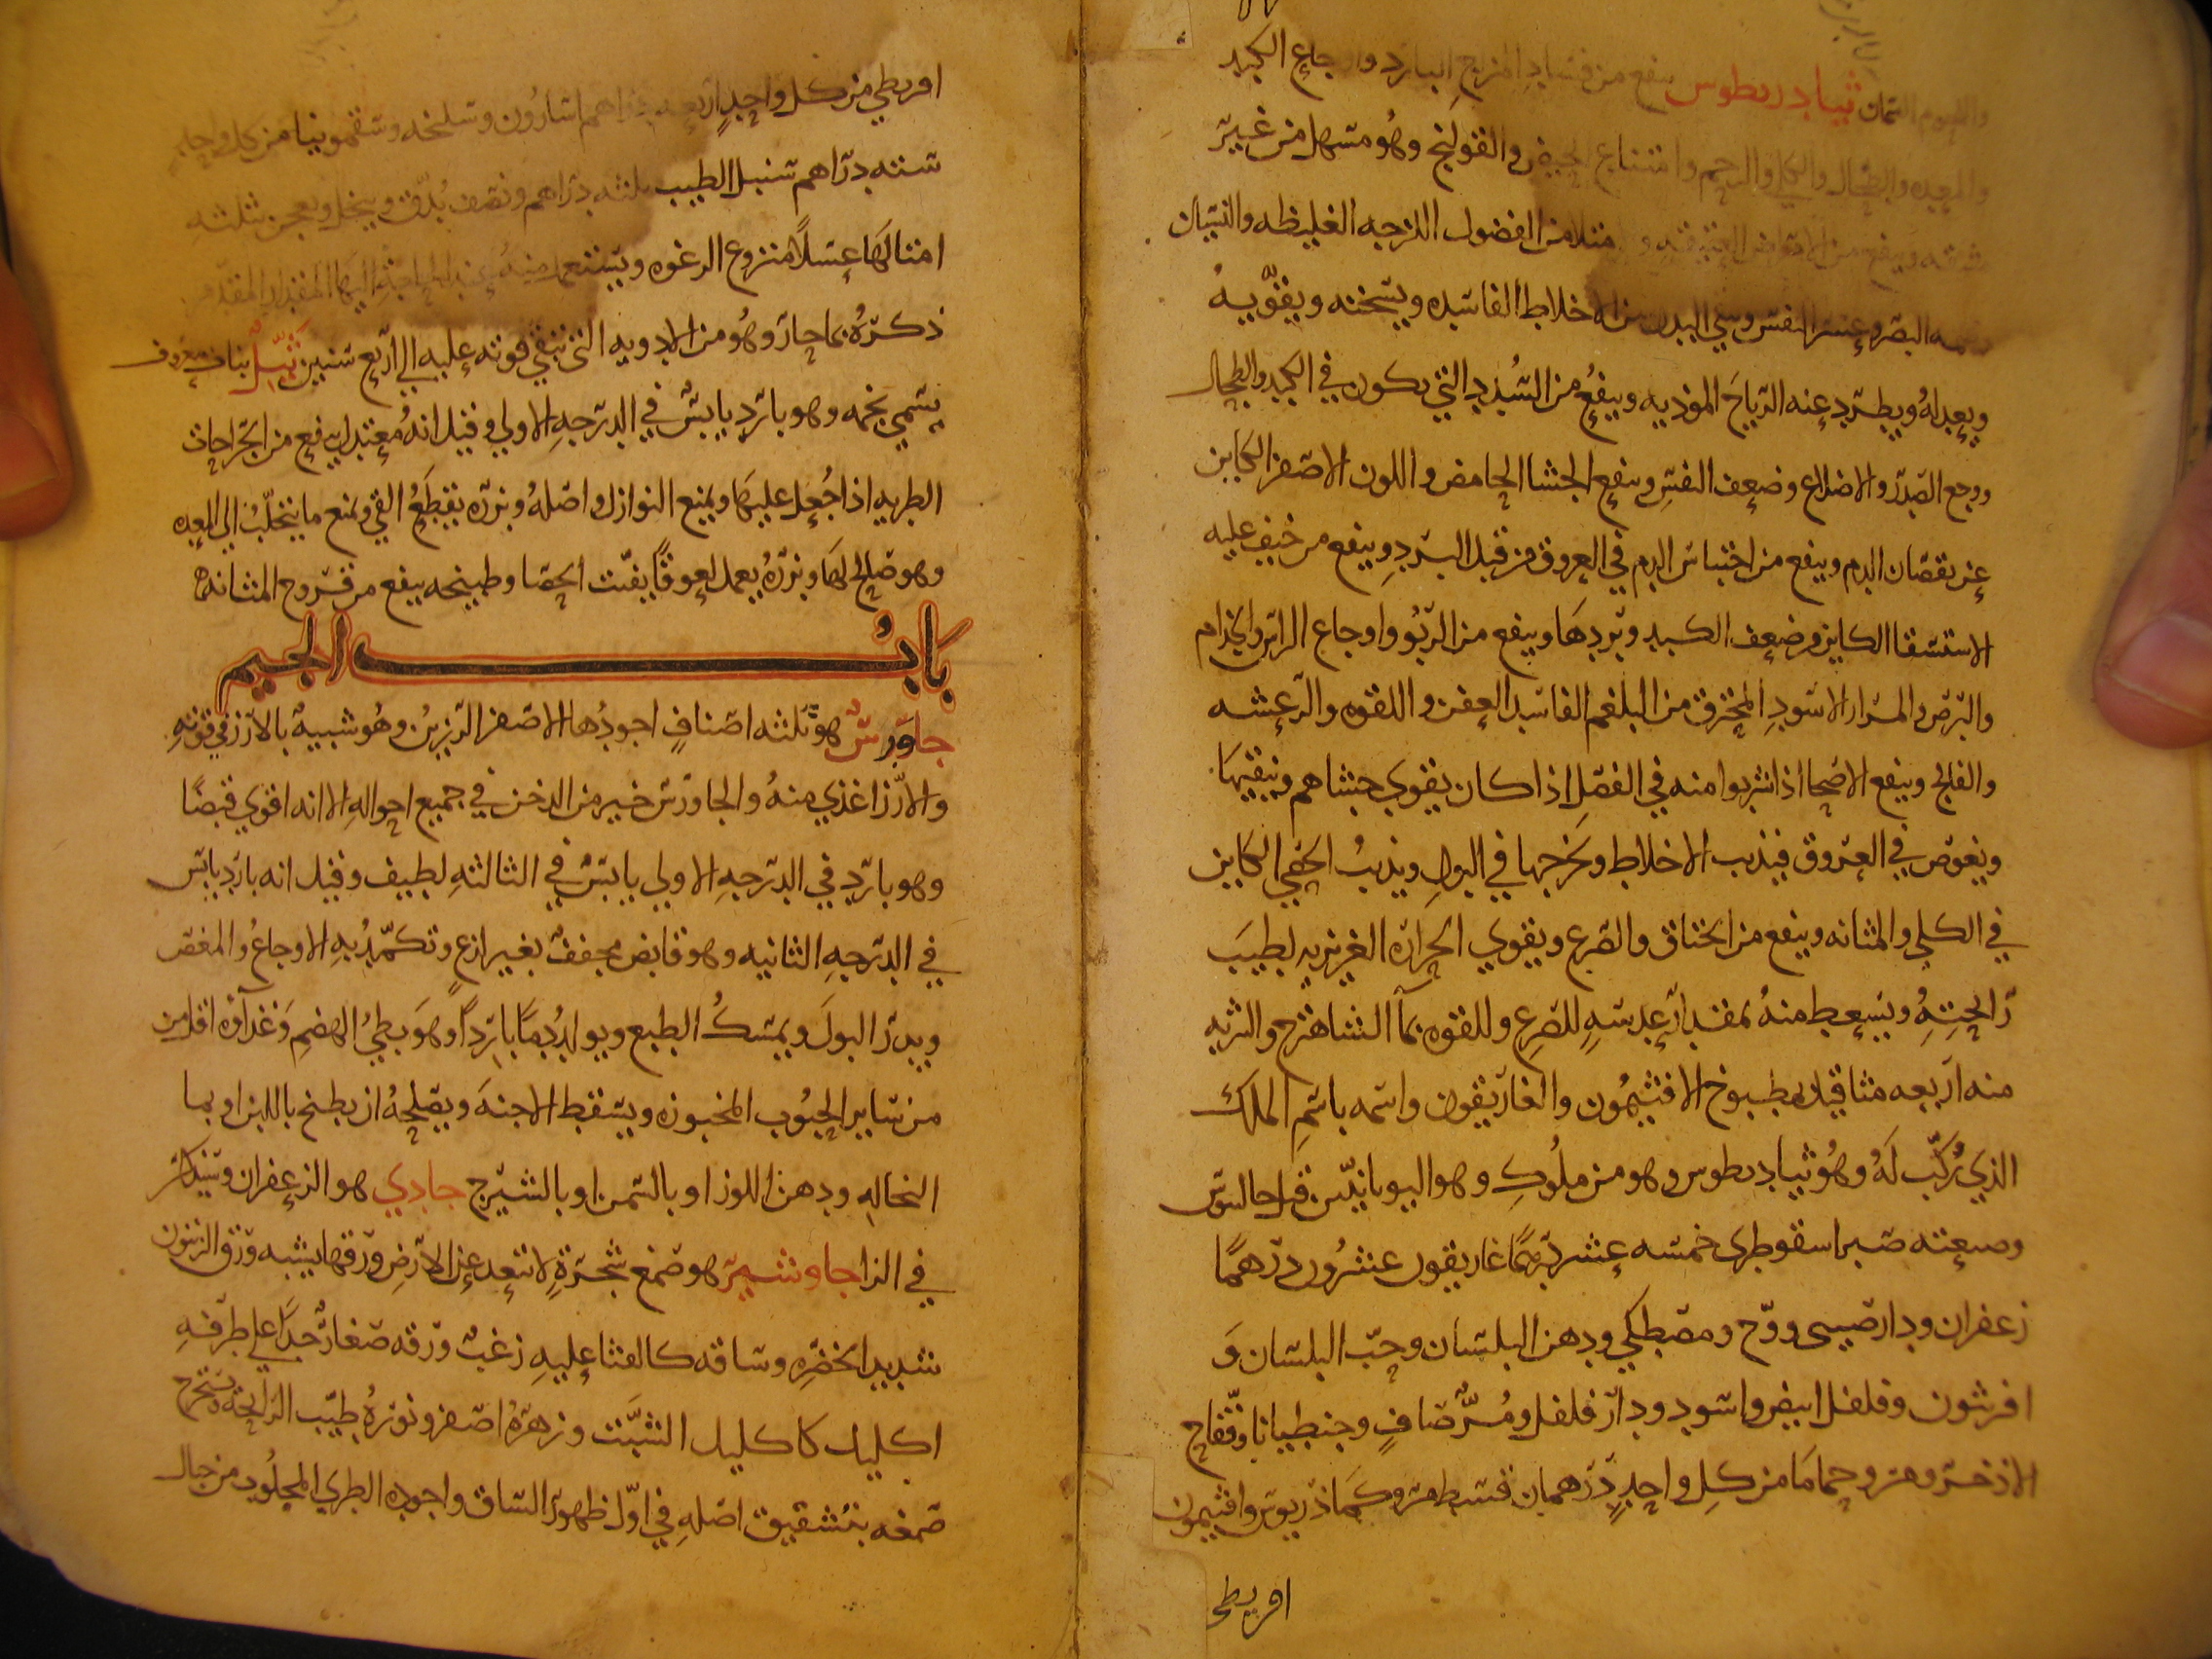 ثيادريطوس ينفع من فساد المزاج البارد واوجاع الكبد
والمعده والطحال والكلي والرحم وامتناع الحيض والقولنج وهو مسهل من غير
مشقه وينفع من الامراض العتيقه من الفضول اللزجه الغليظه والنسيان
البصر وعسر النفس وينقي البدن من الاخلاط الفاسده ويسخنه ويقويه
ويعدله ويطرد عنه الرياح الموذيه وينفع من السدد التي يكون في الكبد والطحال
ووجع الصدر والاضلاع وضعف النفس وينفع الجشا الحامض واللون الاصفر الكاين
عن نقصان الدم وينفع من احتباس الدم في العروق من قبل البرد وينفع من خيف عليه
الاستسقا الكاين من ضعف الكبد وبردها وينفع من الربو واوجاع الراس والجذام
والبرص والمرار الاسود المحترق من البلغم الفاسد العفن واللقوه والرعشه
والفالج وينفع الاصحا اذا شربوا منه في الفصل اذا كان يقوي حشاهم وينقيها
ويغوص في العروق فيذيب الاخلاط ويخرجها في البول ويذيب الحصي الكاين
في الكلي والمثانه وينفع من الخناق والصرع ويقوي الحراره الغريزيه لطيب
رايحته ويسعط منه بمقدار عدسه للصرع وللقوه بماء الشاهترج والشربه
منه اربعه مثاقيل بمطبوخ الافتيمون والغاريقون واسمه باسم الملك
الذي ركب له وهو ثيادريطوس وهو من ملوك
وصنعته صبر اسقوطري خمسه عشر درهما غاريقون عشرون درهما
زعفران ودارصيني ووج ومصطكي ودهن البلسان وحب البلسان و
افربيون وفلفل ابيض واسود ودار فلفل ومر صاف وجنطيانا وفقاح
الاذخر ومر وحماما من كل واحد درهمان قسط مر وكماذريوس وافتيمون
افريطي
افريطي من كل واحد اربعه دراهم اسارون وسليخه وسقمونيا من كل واحد
سته دراهم سنبل الطيب ثلثه دراهم ونصف يدق وينخل ويعجن بثلثه
امثالها عسلا منزوع الرغوه ويستعمل منه عند الحاجه اليها المقدار المقدم
ذكره بما حار وهو من الادويه التي تبقي قوته عليه الي اربع سنين ثيل نبات معروف
يسمي نجمه وهو بارد يابس في الدرجه الاولي وقيل انه معتدل ينفع من الجراحات
الطريه اذا جعل عليها ويمنع النوازل واصله وبزره يقطع القي ويمنع ما يتحلب الي المعده
وهو صالح لها وبزره يعمل لعوقا يفتت الحصا وطبيخه ينفع من قروح المثانه
باب الجيم
جاورس هو ثلثه اصناف اجودها الاصفر الرزين وهو شبيه بالارز في قوته
والارز اغذي منه والجاورس خير من الدخن في جميع احواله الا انه اقوي قبضا
وهو بارد في الدرجه الاولي يابس في الثالثه لطيف وقيل انه بارد يابس
في الدرجه الثانيه وهو قابض مجفف بغير لذع وتكمد به الاوجاع والمغص
ويدر البول ويمسك الطبع ويولد دما باردا وهو بطئ الهضم وغذاوه اقل من
من ساير الحبوب المخبوزه ويسقط الاجنه ويصلحه ان يطبخ باللبن او بما
النخاله ودهن اللوز او بالسمن او بالشيرج جادي هو الزعفران وسيذكر
في الزا جاوشير هو صمغ شجره لا تبعد عن الارض ورقها يشبه ورق الزيتون
شديد الخضره وساقه كالقثا عليه زغب ورقه صغار جدا علي طرفه
اكليل كاكليل الشبت وزهره اصفر ونوره طيب الرايحه يستخرج
صمغه بتشقيق اصله في اول ظهور الساق واجوده الطري المجلوب من جبال